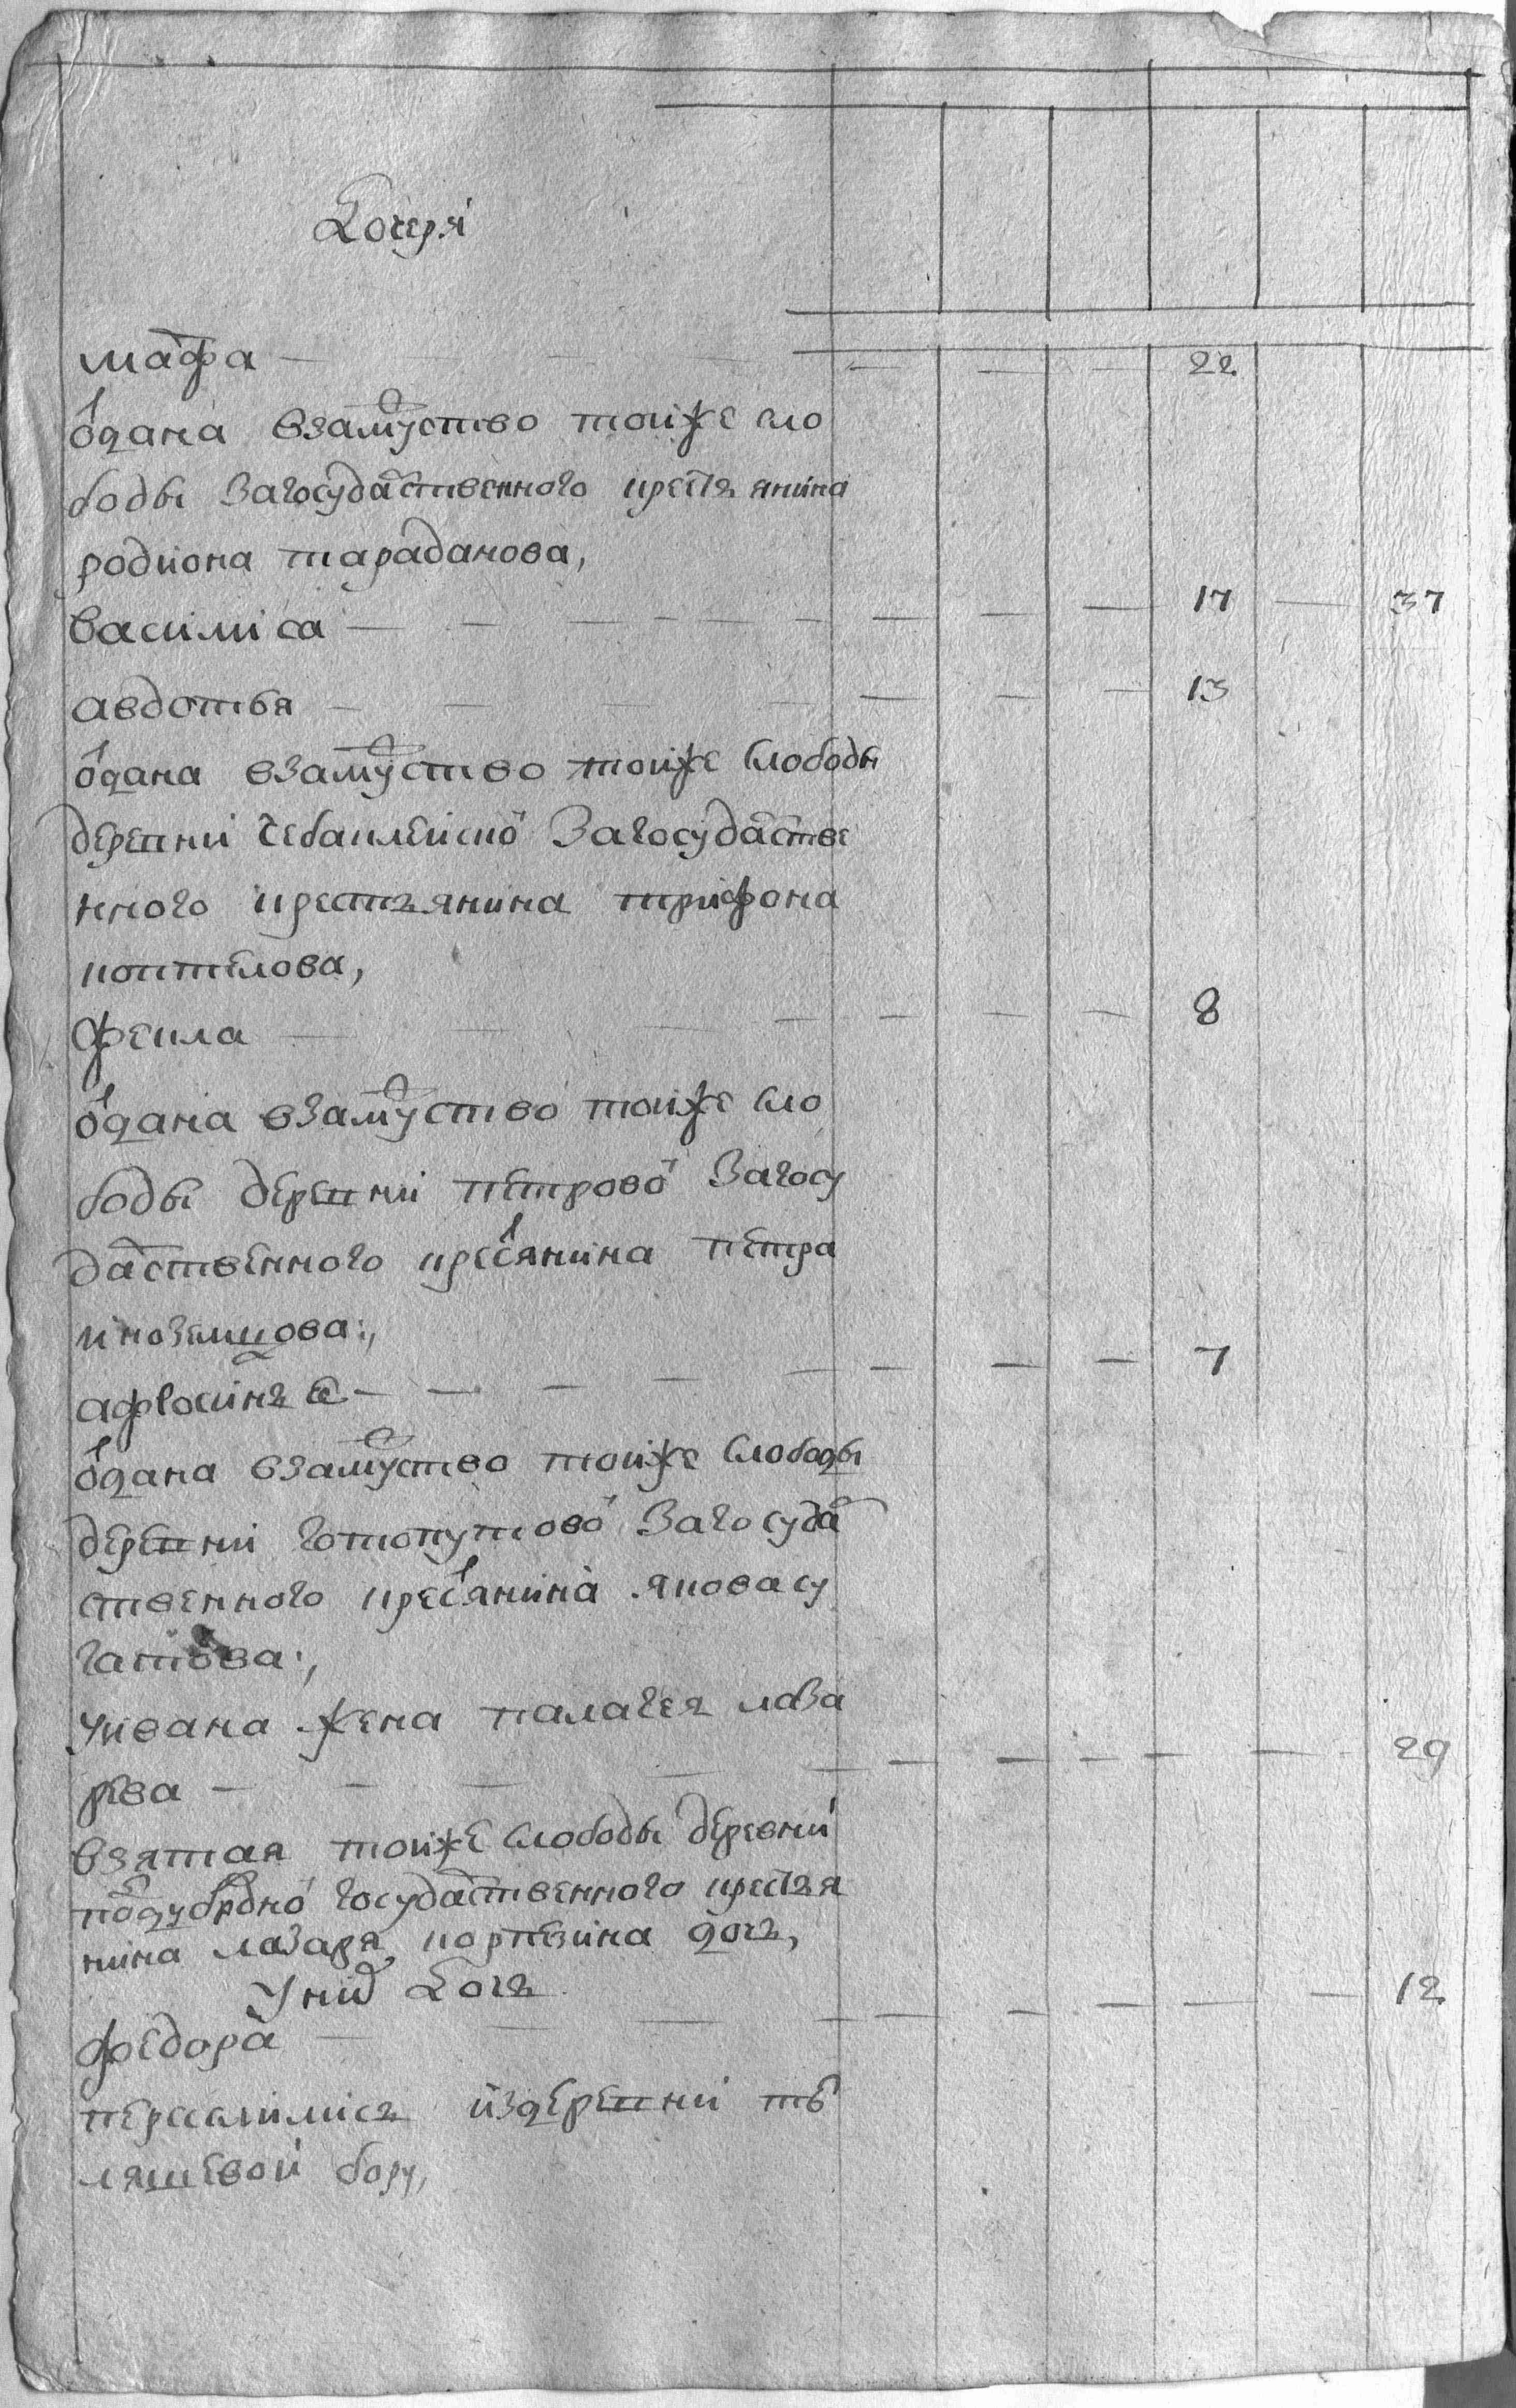 Дочеря
марфа — — — — — — 22
отдана взамужство тойже сло
боды Загосударственного крестьянина
родиона тараданова,
василиса — — — — — — 17 — 37
авдотья — — — — — — 13
отдана взамужство тойже слободы
деревни Чебаклейской Загосударстве
нного крестьянина трифона
коптелова,
фекла — — — — — — 8
отдана взамужство тойже сло
боды деревни петровой Загосу
дарственного крестьянина петра
иноземцова:,
афросинья — — — — — — 7
отдана взамужство тойже слободы
деревни готопутовой Загосудар
ственного крестьянина якова су
гатова:,
Уивана жена палагея лаза
рева — — — — — — — — 29
взятая тойже слободы деревни
поддубровной государственного крестья
нина лазаря портнина дочь,
Уних Дочь
федора — — — — — — — 12
переселились издеревни те
ляшевой бору,